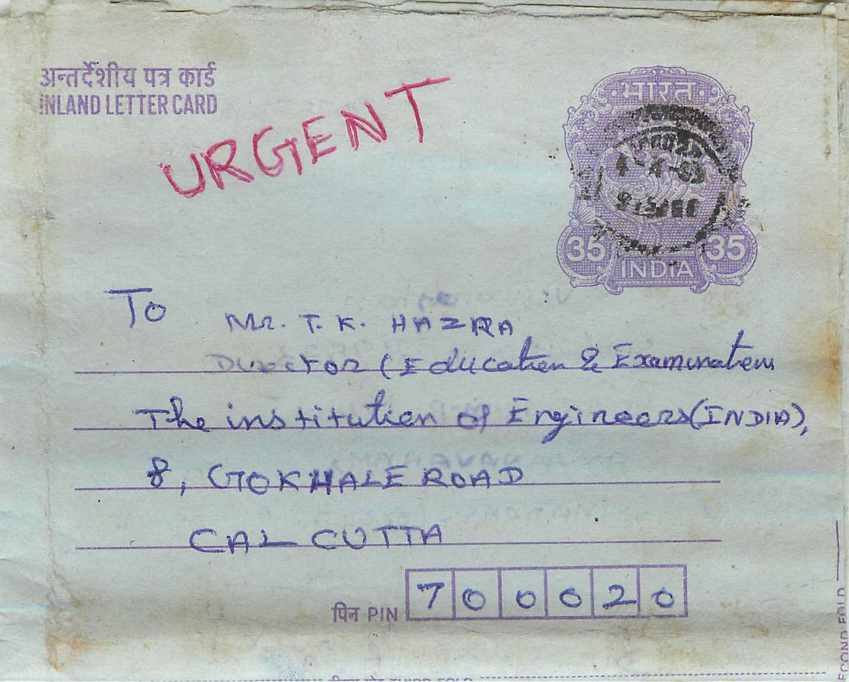 अन्तर्देशीय पत्र कार्ड
INLAND LETTER CARD
URGENT
भारत
35 35
INDIA
To
Mr. T. K. HAZRA
Director (Education & Examination
The institution of Engineers (INDIA),
8, GOKHALE ROAD
CALCUTTA
पिन PIN 700020